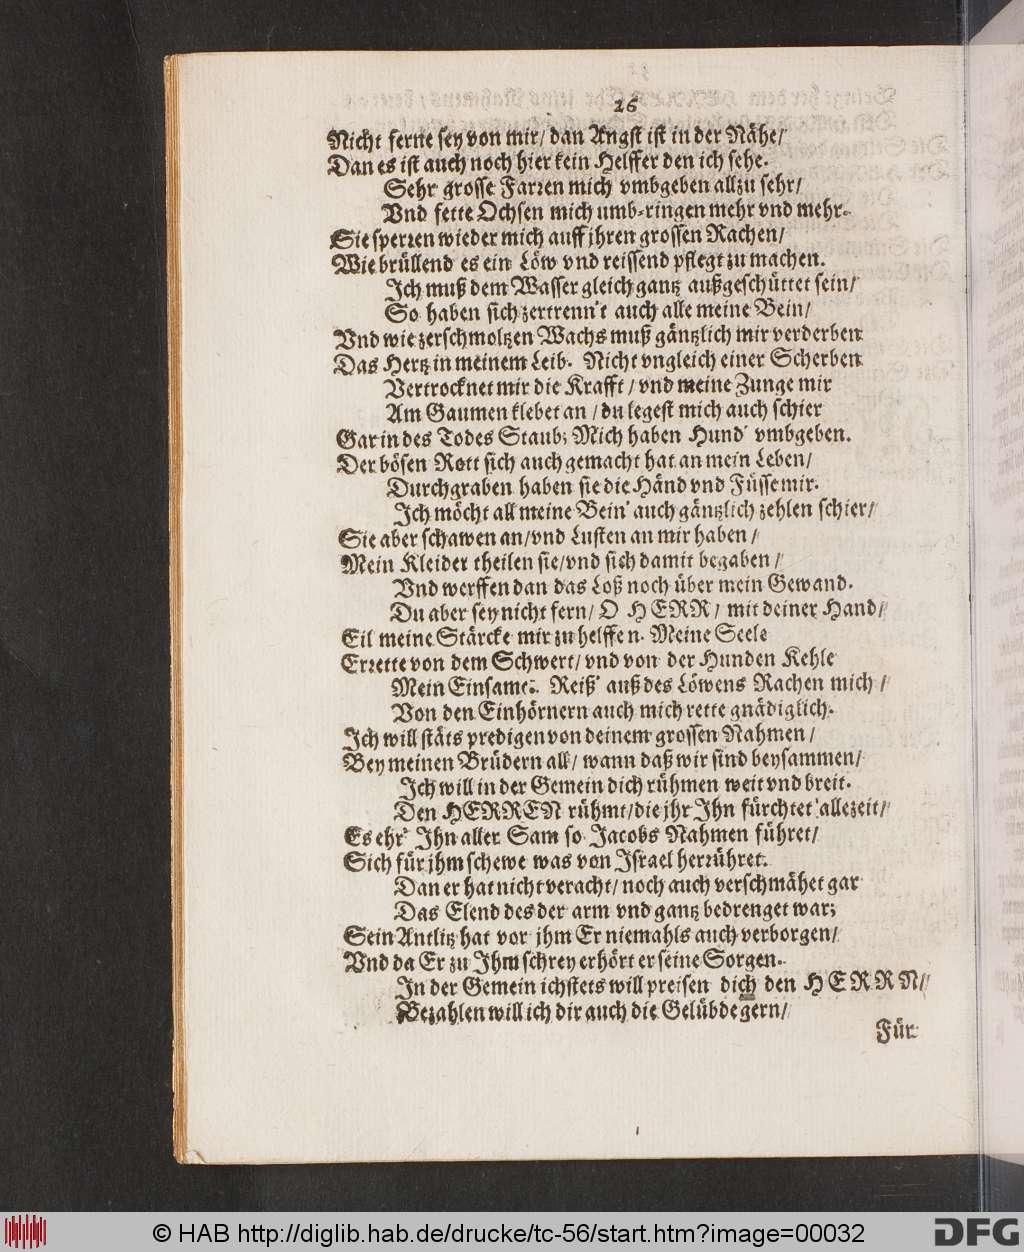 26
Nicht ferne sey von mir/ dan Angst ist in der Nähe/
Dan es ist auch noch hier kein Helffer den ich sehe.
Sehr grosse Farren mich vmbgeben allzu sehr/
Vnd fette Ochsen mich umb-ringen mehr vnd mehr.
Sie sperren wieder mich auff jhren grossen Rachen/
Wie brüllend es ein Löw vnd reissend pflegt zu machen.
Ich muß dem Wasser gleich gantz außgeschüttet sein/
So haben sich zertrenn't auch alle meine Bein/
Vnd wie zerschmoltzen Wachs muß gäntzlich mir verderben
Das Hertz in meinem Leib. Nicht vngleich einer Scherben
Vertrocknet mir die Krafft/ vnd meine Zunge mir
Am Gaumen klebet an/ du legest mich auch schier
Gar in des Todes Staub; Mich haben Hund' vmbgeben.
Der bösen Rott sich auch gemacht hat an mein Leben/
Durchgraben haben sie die Händ vnd Füsse mir.
Ich möcht all meine Bein' auch gäntzlich zehlen schier/
Sie aber schawen an/ vnd Lusten an mir haben/
Mein Kleider theilen sie/ vnd sich damit begaben/
Vnd werffen dan das Loß noch über mein Gewand.
Du aber sey nicht fern/ O HERR/ mit deiner Hand/
Eil meine Stärcke mir zu helffen. Meine Seele
Errette von dem Schwert/ vnd von der Hunden Kehle
Mein Einsame. Reiß' auß des Löwens Rachen mich/
Von den Einhörnern auch mich rette gnädiglich.
Ich will stäts predigen von deinem grossen Nahmen/
Bey meinen Brüdern all/ wann daß wir sind beysammen/
Ich will in der Gemein dich rühmen weit vnd breit.
Den HERREN rühmt/ die jhr Ihn fürchtet allezeit/
Es ehr' Ihn aller Sam so Jacobs Nahmen führet/
Sich für jhm schewe was von Israel herrühret.
Dan er hat nicht veracht/ noch auch verschmähet gar
Das Elend des der arm vnd gantz bedrenget war;
Sein Antlitz hat vor jhm Er niemahls auch verborgen/
Vnd da Er zu Ihm schrey erhört er seine Sorgen.
In der Gemein ich stets will preisen dich den HERRN/
Bezahlen will ich dir auch die Gelübde gern/
Für
© HAB http://diglib.hab.de/drucke/tc-56/start.htm?image=00032
DFG